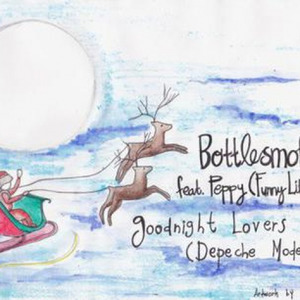 Bottlesmo
feat. Peppy (Funny Lit
Goodnight Lovers
(Depeche Mode
Artwork by